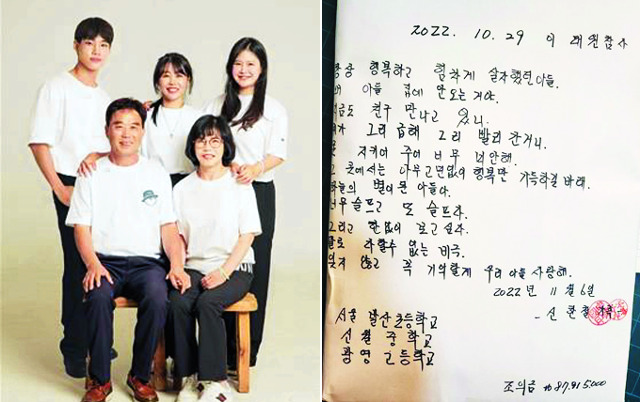 2022. 10. 29 이태원참사
항상 행복하고 힘차게 살자했던아들.
아들 집에 안오는거야.
지금도 친구 만나고 있니.
그리 급해 그리 빨리 간거니.
지켜 주어 너무 미안해.
그 곳에서는 아무고민없이 행복만 가득하길 바래.
하늘의 별이 된 아들아.
너무슬프고 또 슬프다.
그리고 한없이 보고싶다.
말로 다할수 없는 비극.
잊지 않고 꼭 기억할게 우리 아들 사랑해.
2022년 11월 6일
초등학교
신월 중학교
광영 고등학교
조의금 ₩87,915,000